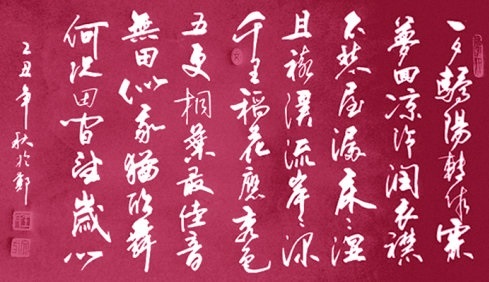 一夕驕陽轉作霖
夢回凉冷潤衣襟
不愁屋漏床々濕
且禧溪流岸々深
千里稻花應秀色
五更桐葉最佳音
無田似我猶欣舞
何况田間望歲心
乙丑年秋於鄭